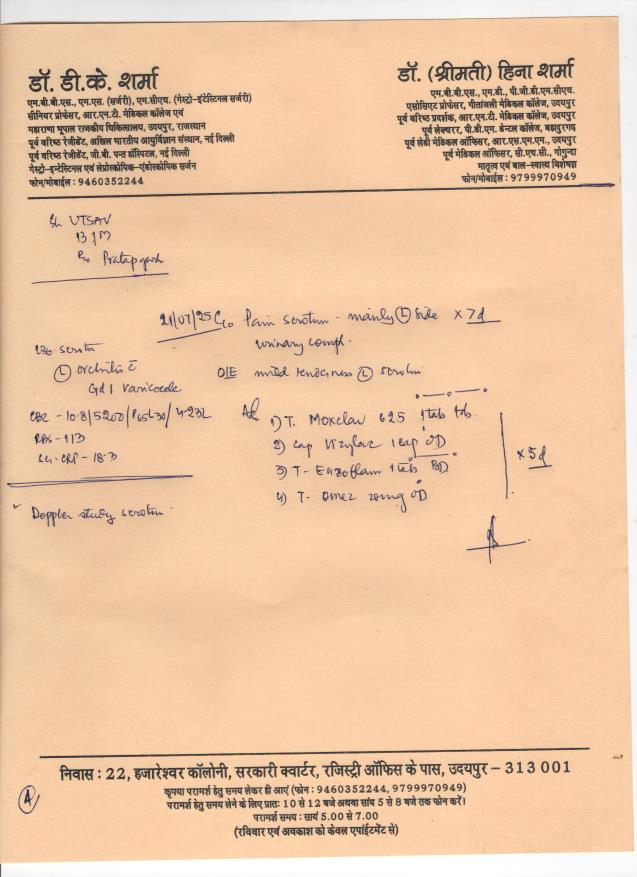 डॉ. डी.के. शर्मा
एम.बी.बी.एस., एम.एस. (सर्जरी), एम.सीएच. (गेस्ट्रो-इंटेस्टिनल सर्जरी)
सीनियर प्रोफेसर, आर.एन.टी. मेडिकल कॉलेज एवं
महाराणा भूपाल राजकीय चिकित्सालय, उदयपुर, राजस्थान
पूर्व वरिष्ठ रेजीडेंट, अखिल भारतीय आयुर्विज्ञान संस्थान, नई दिल्ली
पूर्व वरिष्ठ रेजीडेंट, जी.बी. पन्त हॉस्पिटल, नई दिल्ली
गेस्ट्रो-इन्टेस्टिनल एवं लेप्रोस्कोपिक-एंडोस्कोपिक सर्जन
फोन/मोबाईल : 9460352244
डॉ. (श्रीमती) हिना शर्मा
एम.बी.बी.एस., एम.डी., पी.जी.डी.एम.सीएच.
एसोसिएट प्रोफेसर, गीतांजली मेडिकल कॉलेज, उदयपुर
पूर्व वरिष्ठ प्रदर्शक, आर.एन.टी. मेडिकल कॉलेज, उदयपुर
पूर्व लेक्चरर, पी.डी.एम. डेन्टल कॉलेज, बहादुरगढ़
पूर्व लेडी मेडिकल ऑफिसर, आर.एस.एम.एम., उदयपुर
पूर्व मेडिकल ऑफिसर, सी.एच.सी., गोगुन्दा
मातृत्व एवं बाल-स्वास्थ्य विशेषज्ञ
फोन/मोबाईल : 9799970949
UTSAV
13/M
R/o Pratapgarh
21/07/25 C/o Pain scrotum - mainly (L) side x 7d
urinary compl.
O/E mild tenderness (L) scrotum
USG scrotum
(L) orchitis c̄
Gd I varicocele
CBC - 10.8/5200/P65L30/4.23L
RBS - 113
CRP - 18.3
Doppler study scrotum
1) T. Moxclav 625 1 tab tds.
2) Cap 1 cap OD
3) T- Enzoflam 1 tab BD
4) T- Omez 20mg OD
x 5d
निवास : 22, हजारेश्वर कॉलोनी, सरकारी क्वार्टर, रजिस्ट्री ऑफिस के पास, उदयपुर – 313 001
कृपया परामर्श हेतु समय लेकर ही आएं (फोन : 9460352244, 9799970949)
परामर्श हेतु समय लेने के लिए प्रातः 10 से 12 बजे अथवा सांय 5 से 8 बजे तक फोन करें।
परामर्श समय : सायं 5.00 से 7.00
(रविवार एवं अवकाश को केवल एपॉईंटमेंट से)
A